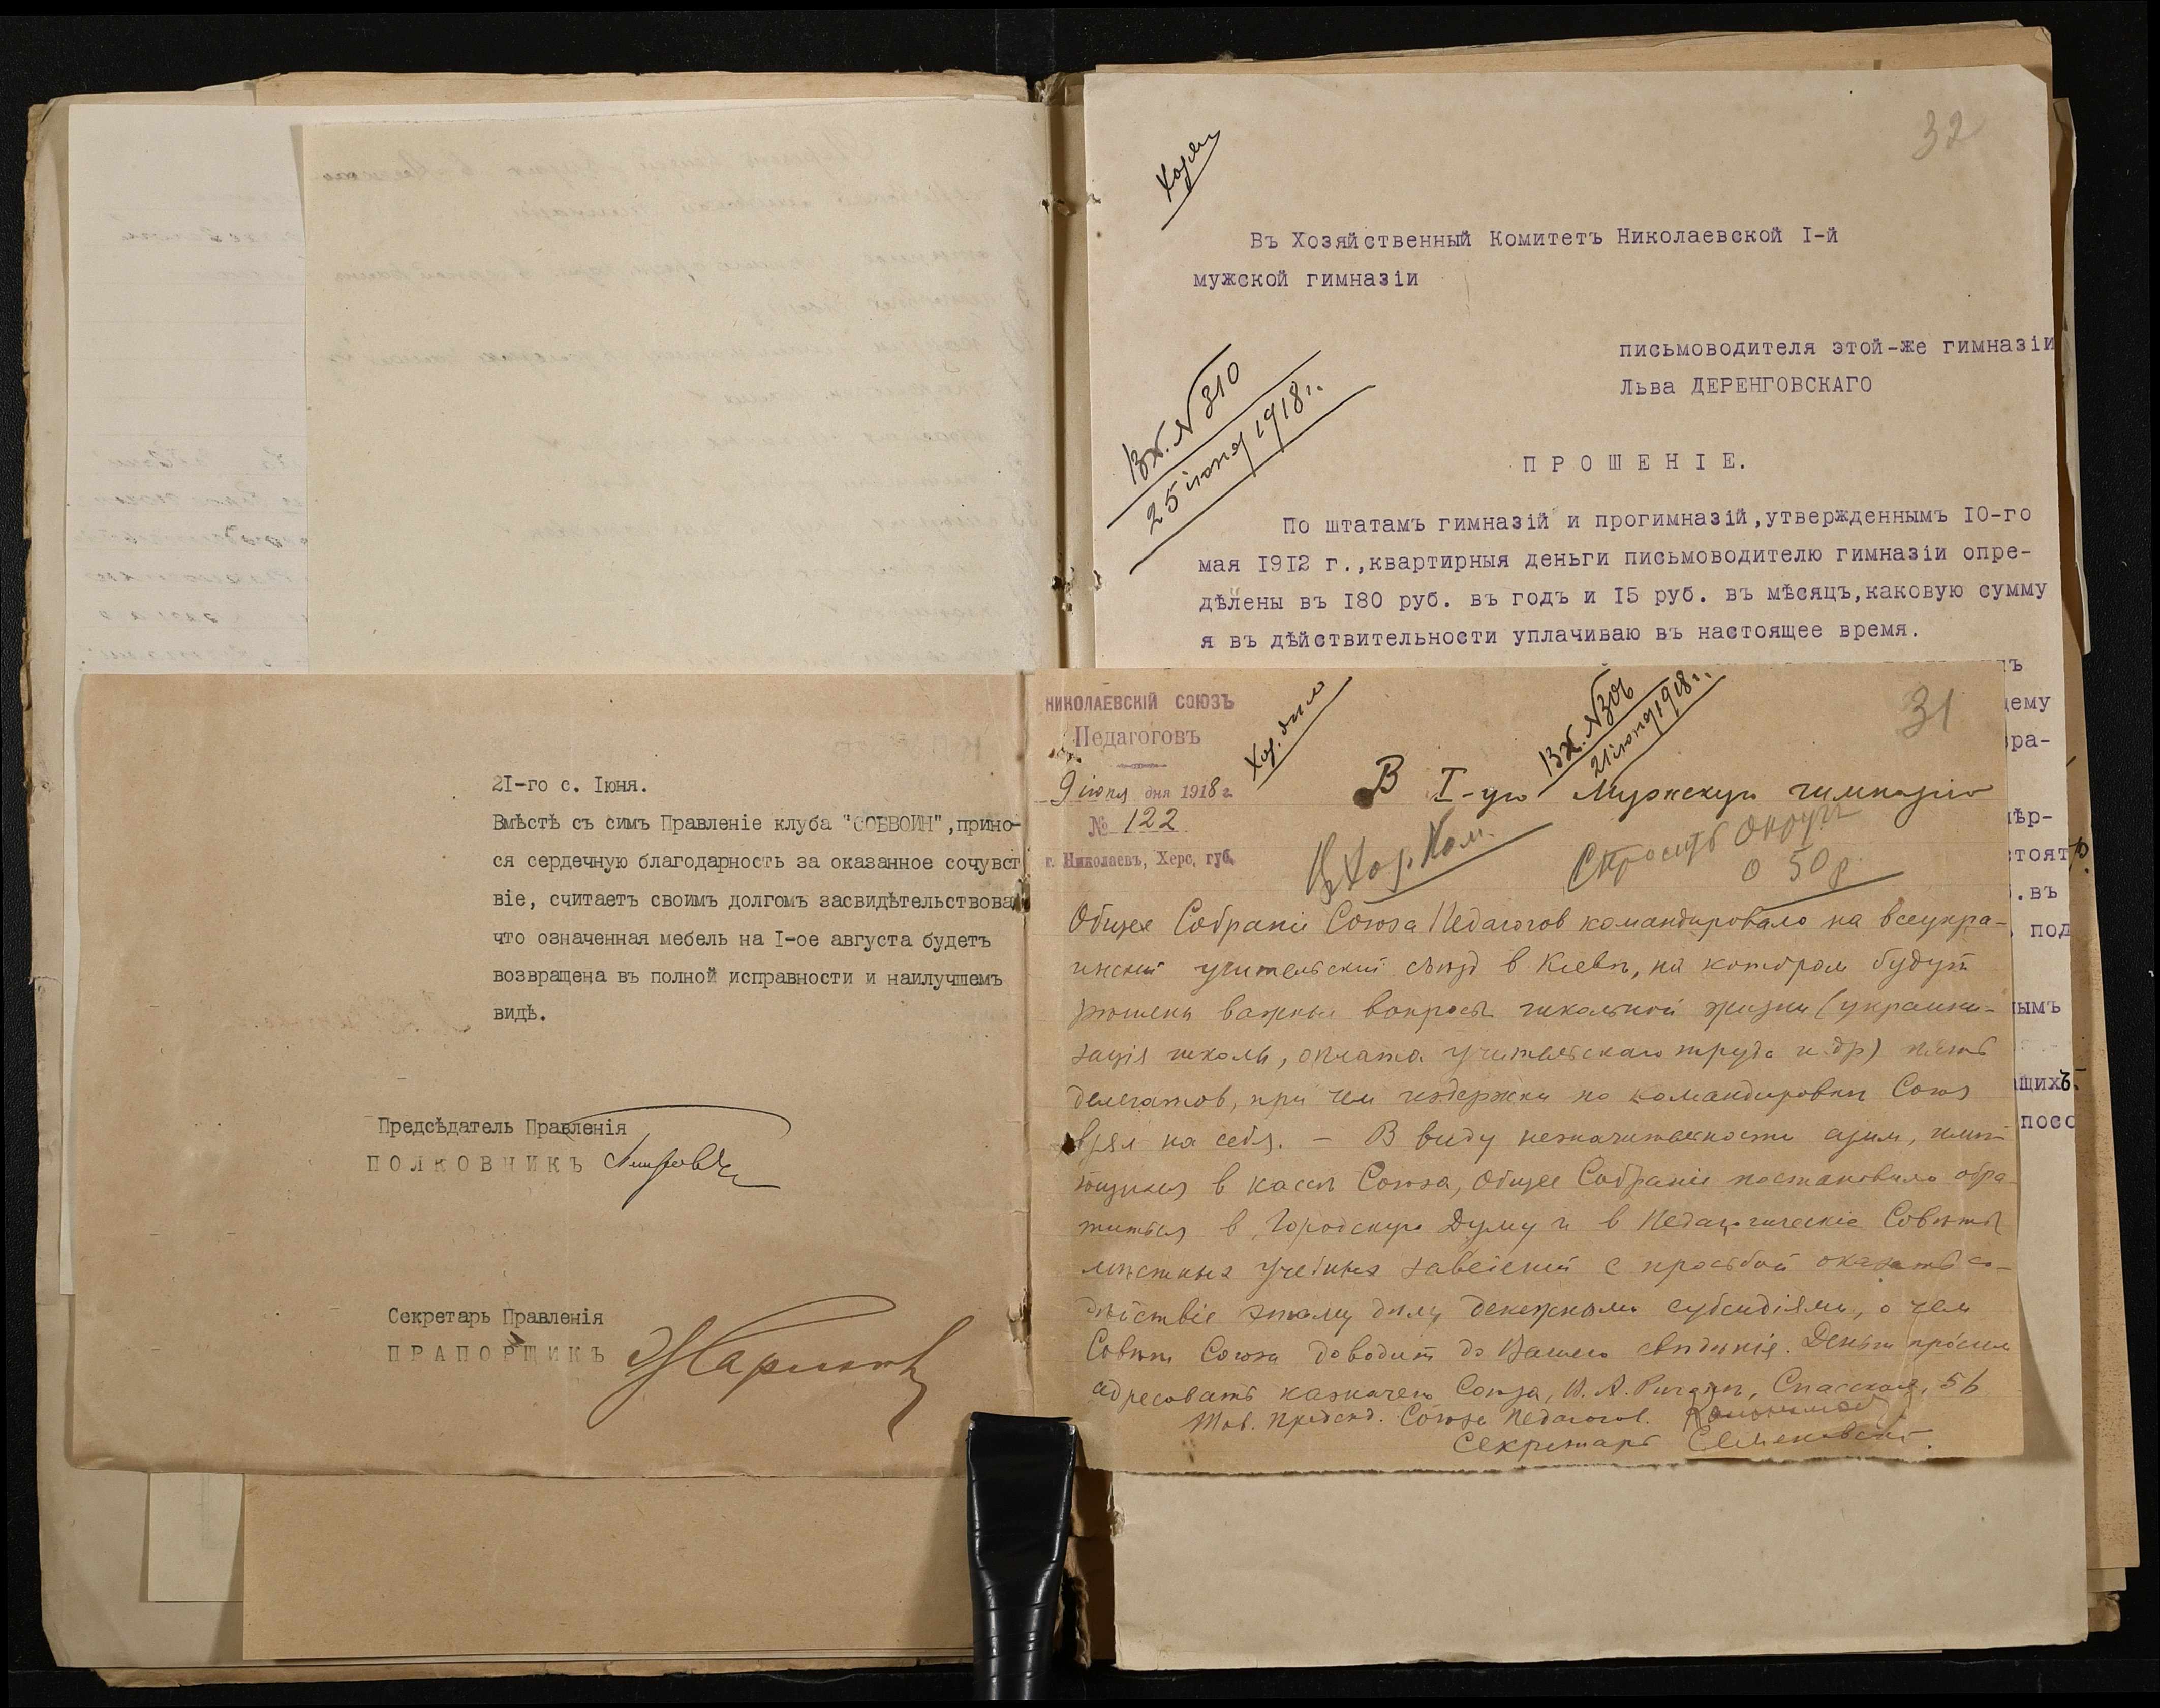 21-го с. Iюня.
Вмѣстѣ съ симъ Правленiе клуба "СОБВОИН",прино-
ся сердечную благодарность за оказанное сочувст
вiе, считаетъ своимъ долгомъ засвидѣтельствова
что означенная мебель на I-ое августа будетъ
возвращена въ полной исправности и наилучшемъ
видѣ.
Предсѣдатель Правленiя
ПОЛКОВНИКЪ
Секретарь Правленiя
ПРАПОРЩИКЪ
32
Въ Хозяйственный Комитетъ Николаевской I-й
мужской гимназiи
письмоводителя этой-же гимназiи
Льва ДЕРЕНГОВСКАГО
Вх. N 310
25 iюня 1918 г.
ПРОШЕНIЕ.
По штатамъ гимназiй и прогимназiй,утвержденнымъ I0-го
мая I9I2 г.,квартирныя деньги письмоводителю гимназiи опре-
дѣлены въ I80 руб. въ годъ и I5 руб. въ мѣсяцъ,каковую сумму
я въ дѣйствительности уплачиваю въ настоящее время.
ъ
ему
ра-
ѣр-
тоят
.въ
под
ымъ
щихъ
посо
31
НИКОЛАЕВСКIЙ СОЮЗЪ
Педагоговъ
9 iюня дня 1918 г.
№ 122
г. Николаевъ, Херс. губ.
Хоз. дѣло
Вх. N 306
21 iюня 1918 г.
В I-ую Мужскую гимназiю
В Хоз. Ком.
Спросить Округ
о 50 р.
Общее Собранiе Союза Педагогов командировало на всеукра-
инскiй учительский съѣзд в Кiевѣ, на котором будут
рѣшены важные вопросы школьной жизни (украини-
зацiя школы, оплата учительскаго труда и др) пять
делегатов, при чем издержки по командировкѣ Союз
взял на себя. – В виду незначительности сумм, имѣ-
ющихся в кассѣ Союза, Общее Собранiе постановило обра-
титься в Городскую Думу и в Педагогическiе Совѣты
мѣстных учебных заведенiй с просьбой оказать со-
дѣйствiе этому дѣлу денежными субсидiями, о чем
Совѣт Союза доводит до Вашего свѣдѣнiя. Деньги просим
адресовать казначею Союза, Спасская, 56
Тов. Предсѣд. Союза Педагогов.
Секретарь